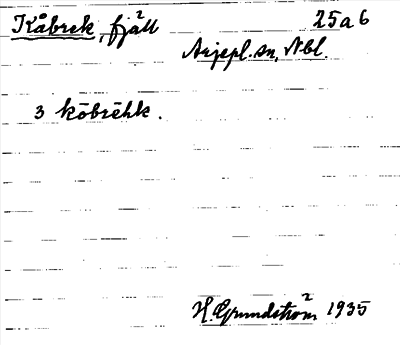 Kåbrek, fjäll 25a6
Arjepl. sn, Nbl.
3 kōbrēhk.
H. Grundström 1935